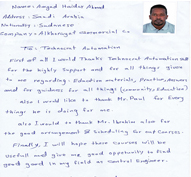 Name: Amged Haider Ahmed
Address: Saudi Arabia
Nationality: Sudanese
Company: Alkhorayef Commercial Co
To: Technocrat Automation
First of all I would thanks Technocrat Automation
for the highly Support and for all things given
to me regarding: Education materials, Practice, Answers
and for guidance for all things (community, Education)
Also I would like to thank Mr. Paul for every
things he is doing for me
also I would to thank Mr. Ibrahim also for
the good arrangement & Scheduling for our Courses.
Finally, I will hope these courses will be
usefull and give me good opportunity to find
good good in my field as Control Engineer.